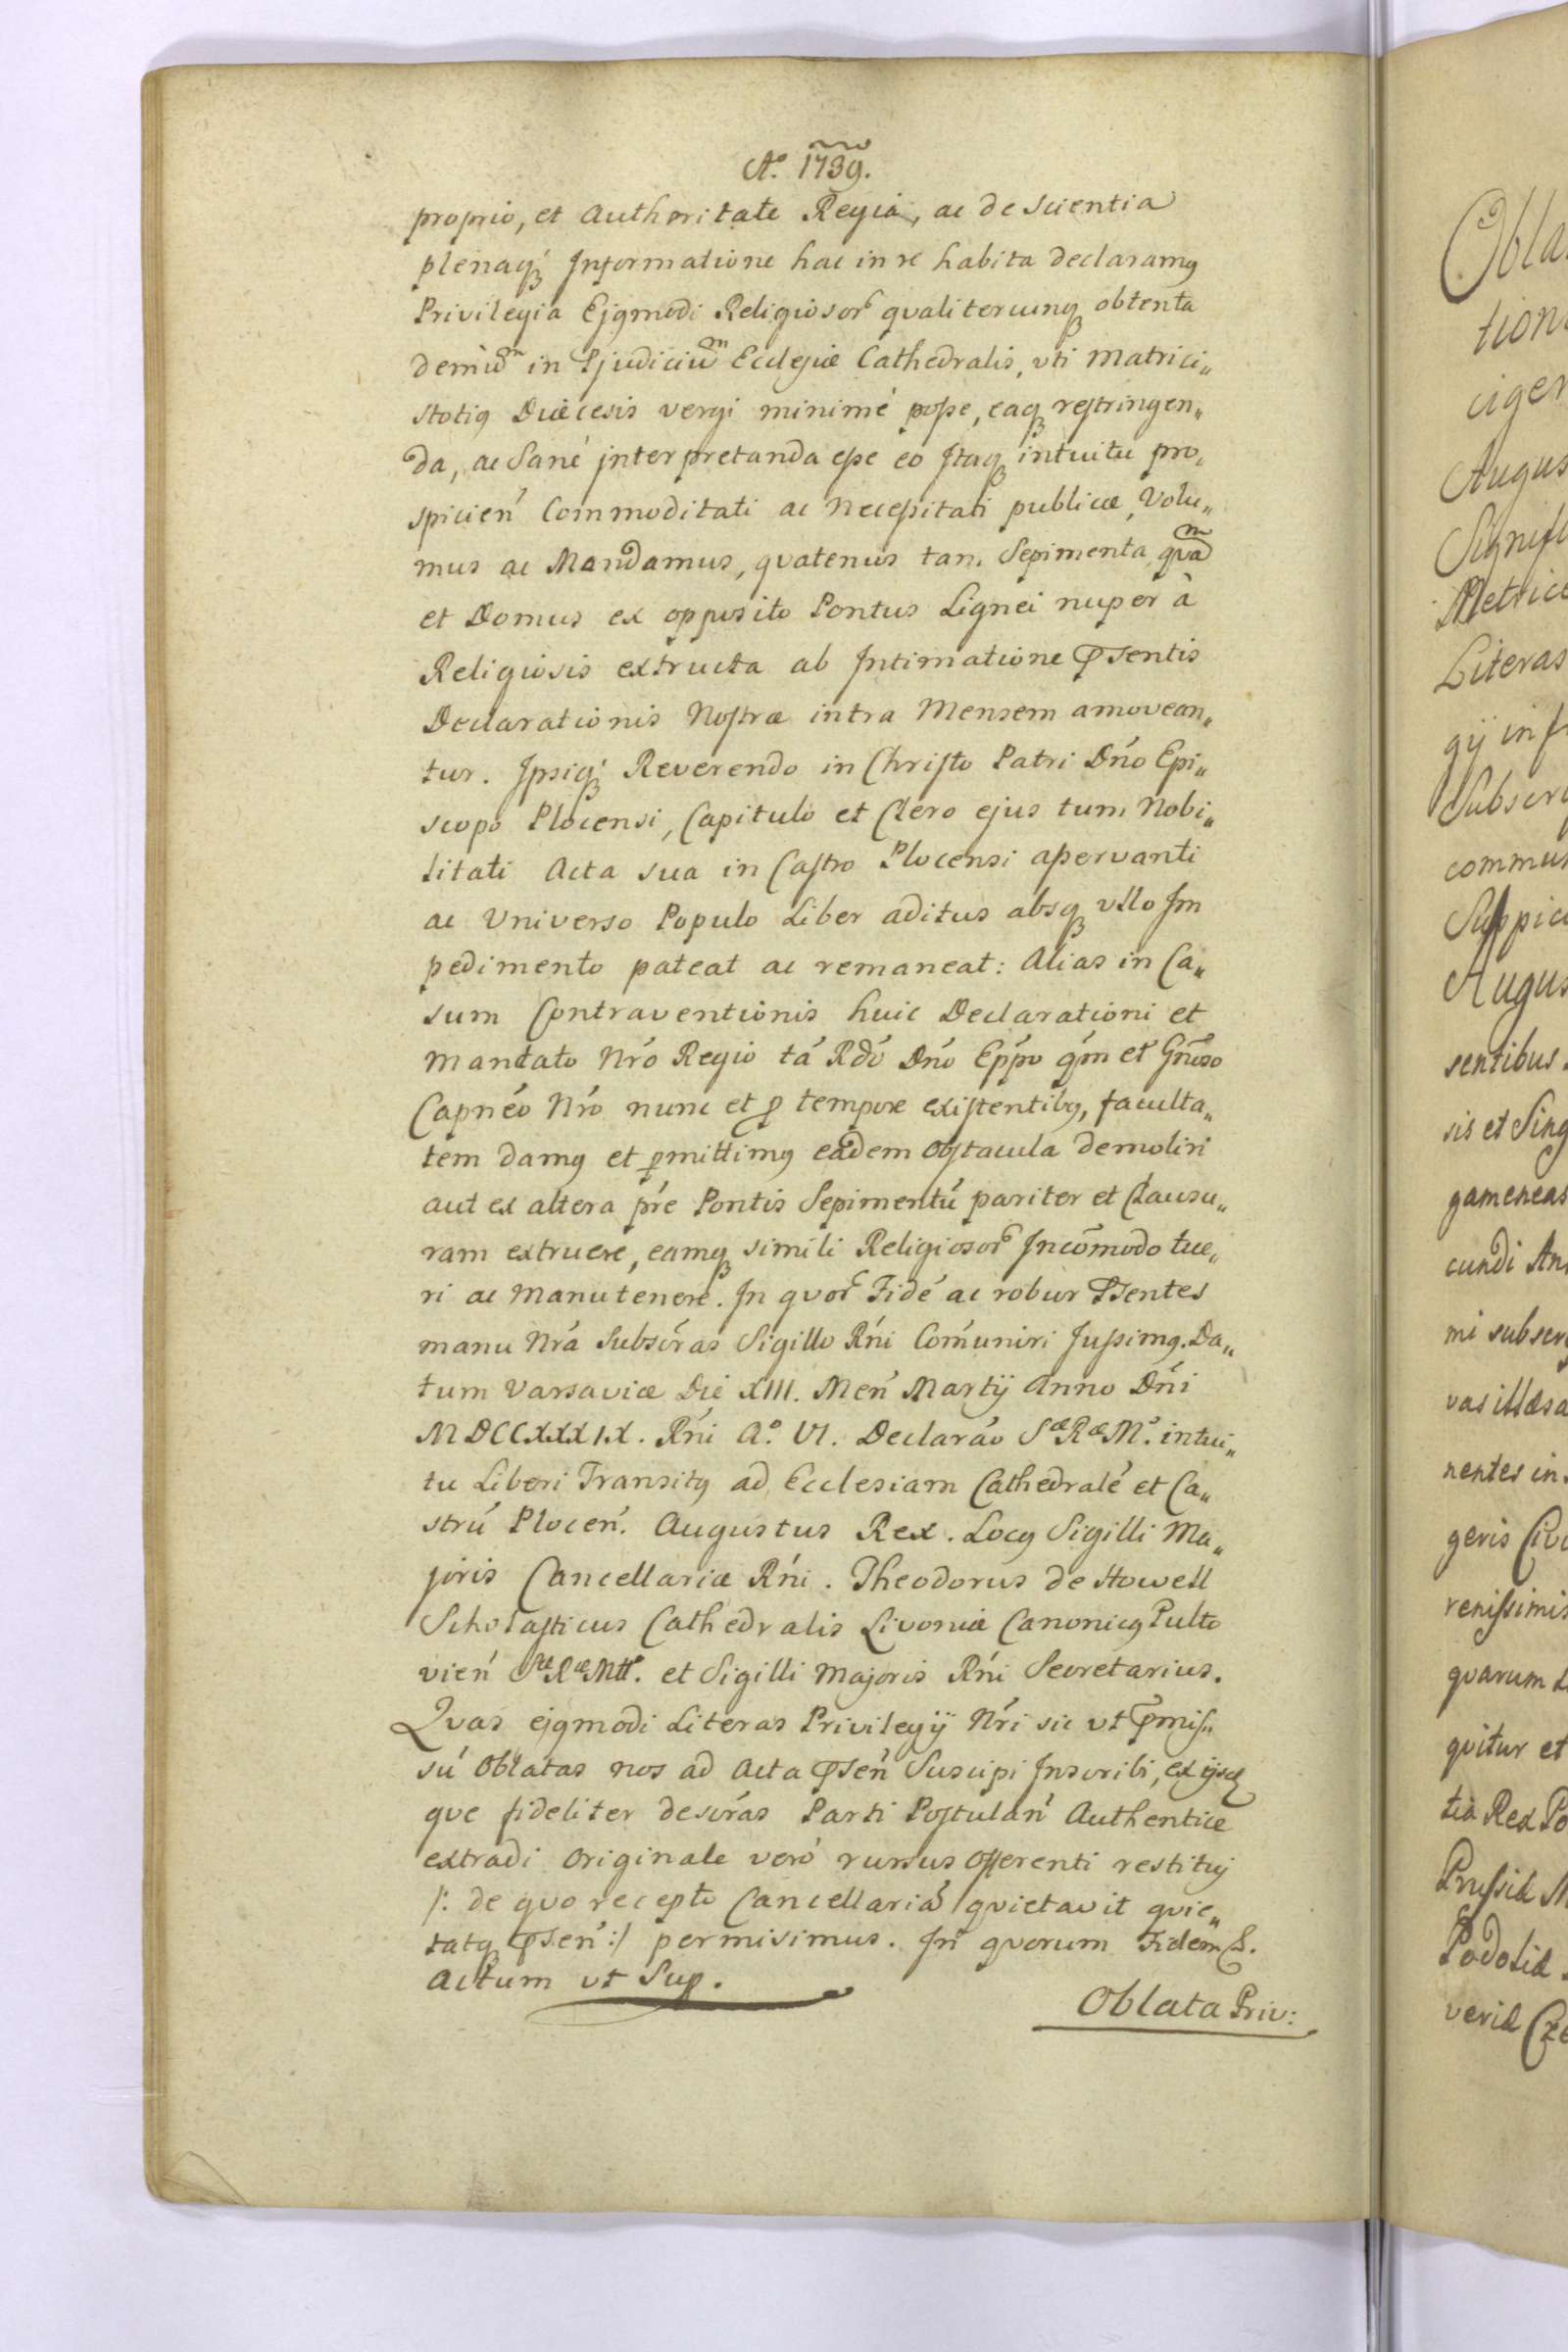 Aº. 1739.
proprio, et Authoritate Regia, ac de Scientia
plenaq́ꝫ Informatione hac in re habita declaramꝰ
Privilegia Ejꝰmodi Religiosorꝭ qvalitercunqꝫ obtenta
demũ in Pjudiciũ Ecclesiæ Cathedralis, vti Matrici„
s totiꝰ Diæcesis vergi minimè posse, eaqꝫ restringen„
da, ac Sanè jnterpretanda esse eo Itaqꝫ intuitu pro„
spicień Commoditati ac Necessitati publicæ, Volu„
mus ac Mandamus, qvatenus tam Sepimenta qvã
et Domus ex opposito Pontus Lignei nuper à
Religiosis extructa ab Intimatione Psentis
Declarationis Nostræ intra Mensem amovean„
tur. Ipsiq́ꝫ Reverendo in Christo Patri Dńo Epi„
scopo Plocensi, Capitulo et Clero ejus tum Nobi„
litati Acta sua in Castro Plocensi asservanti
ac Universo Populo Liber aditus absqꝫ vllo Im
pedimento pateat ac remaneat: Alias in Ca„
sum Contraventionis huic Declarationi et
Mandato Nŕo Regio tá Rdó Dńo Epṕo qḿ et Gńoso
Capnéo Nŕo nunc et ꝓ tempore existentibꝰ, faculta„
tem damꝰ et ꝑmittimꝰ eadem obstacula demoliri
aut ex altera pŕe Pontis Sepimentú pariter et Clausu„
ram extruere, eamqꝫ simili Religiosorꝭ Incõmodo tue„
ri ac Manutenere. In qvorꝭ Fidé ac robur Psentes
manu Nŕa Subscŕas Sigillo Rńi Com̃uniri Jussimꝰ. Da„
tum Varsaviæ Die XIII. Meń Martij Anno Dńi
MDCCXXXIX. Rńi Aº. VI. Declaraó SæRæMꝭ. intui„
tu Liberi Transitꝰ ad Ecclesiam Cathedralé et Ca„
strú Ploceń. Augustus Rex. Locꝰ Sigilli Ma„
joris Cancellariæ Rńi. Theodorus de Howell
Scholasticus Cathedralis Livoniæ Canonicꝰ Pulto
vień SæRæMttꝭ. et Sigilli Majoris Rńi Secretarius.
Qvas ejꝰmodi Literas Privilegij Nŕi sic vt Pmis„
sú Oblatas nos ad Acta Pseń Suscipi Inscribi, ex ijsd
qve fideliter descŕas Parti Postulań Authentice
extradi Originale veró rursus Offerenti restituj
/: de qvo recepto Cancellariá qvietavit qvie„
tatqꝫ Pseń :/ permisimus. In qvorum Fidem &.
Actum vt Sup.
Oblata Priv: